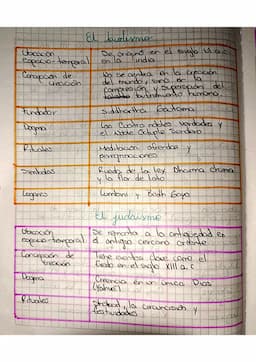 El budismo
Ubicación
espacio-temporal
Se originó en el siglo VI a.C
en la India
Concepción de
creación
No se centra en la creación
del mundo, sino en la
comprensión y superación del
sufrimiento humano.
Fundador
Siddhartha Gautama
Dogma
Las Cuatro nobles verdades y
el Noble Óctuple Sendero
Rituales
Meditación ofrendas y
peregrinaciones
Símbolos
Rueda de la ley Dharma chakra
y la flor de loto
Lugares
Lumbini y Bodh Gaya
El judaísmo
Ubicación
espacio-temporal
Se remonta a la antigüedad en
el antiguo cercano oriente
Concepción de
creación
Tiene eventos clave como el
Éxodo en el siglo XIII a.C
Dogma
Creencia en un único Dios
(Yahvé)
Rituales
Shabat, la circuncisión y
festividades